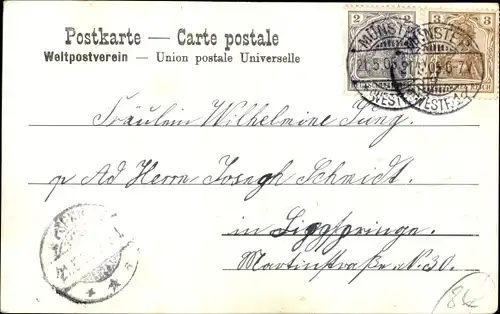 Postkarte — Carte postale
Weltpostverein — Union postale Universelle
2 2 3 3
MÜNSTER MÜNSTER
21.5.05 5.05.6-7
WESTF. WESTF.
REICH
Fräulein Wilhelmine Jung.
p Ad Herrn Joseph Schmidt.
in Lippspringe.
Martinstraße N. 30.